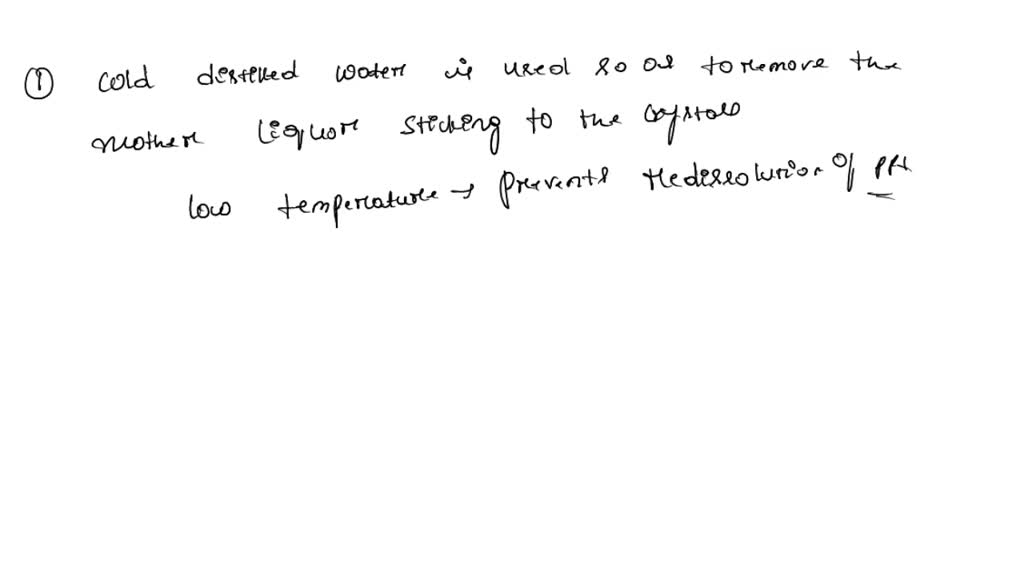 ① cold distilled water is used so as to remove the
mother liquor sticking to the crystals
low temperature → prevents redissolution of